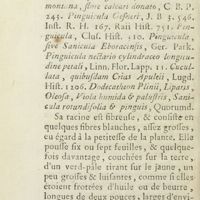 montana, flore calcari donato, C. B. P.
243. Pinguicula Gesneri, J. B. 3. 546.
Inst. R. H. 167. Raii Hist. 752. Pin-
guicula, Clus. Hist. 310. Pinguicula,
sive Sanicula Eboracensis, Ger. Park.
Pinguicula nectario cylindraceo longitu-
dine petali, Linn. Flor. Lapp. 11. Cucul-
lata, quibusdam Crias Apuleii, Lugd.
Hist. 1206. Dodecatheon Plinii, Liparis,
Oleosa, Viola humida & palustris, Sani-
cula rotundifolia & pinguis, Quorumd.
Sa racine est fibreuse, & consiste en
quelques fibres blanches, assez grosses,
eu égard à la petitesse de la plance. Elle
pousse six ou sept feuilles, & quelque-
fois davantage, couchées sur la terre,
d'un verd-pâle tirant sur le jaune, un
peu grosses & luisantes, comme si elles
étoient frotées d'huile ou de beurre,
longues de deux pouces, larges d'envi-